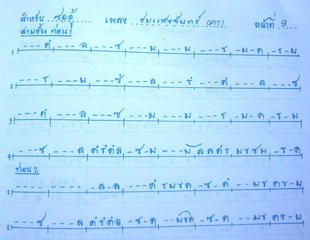 สำหรับ ซออู้ เพลง ชมแสงจันทร์ (เถา) หน้าที่ 9
สามชั้น ท่อน 1
1 - - - ดํ - - - ล - - - ซ - - - ม - - - ม - - - ร - ม - ด - ร - ม
2 - - - ร - - - ม - - - ซํ - - - ล - - - ร - - - ดํ - - - ล - - - ซ
3 - - - ดํ - - - ล - - - ซ - - - ม - - - ม - - - ร - ม - ด - ร - ม
4 - - - ซ - - - ล ดํรํดํล - ซ - ม ล ล ด ร ม ร ซ ม - ร - ด
ท่อน 2
1 - - - - - - - - - ล - ล - - - ดํ ร ม ร ด - ซ - ดํ - - ม ร ด ร - ม
2 - - - ซ - - - ล ดํรํดํล - ซ - ด - ซ - ด - - ม ร ด ร - ม